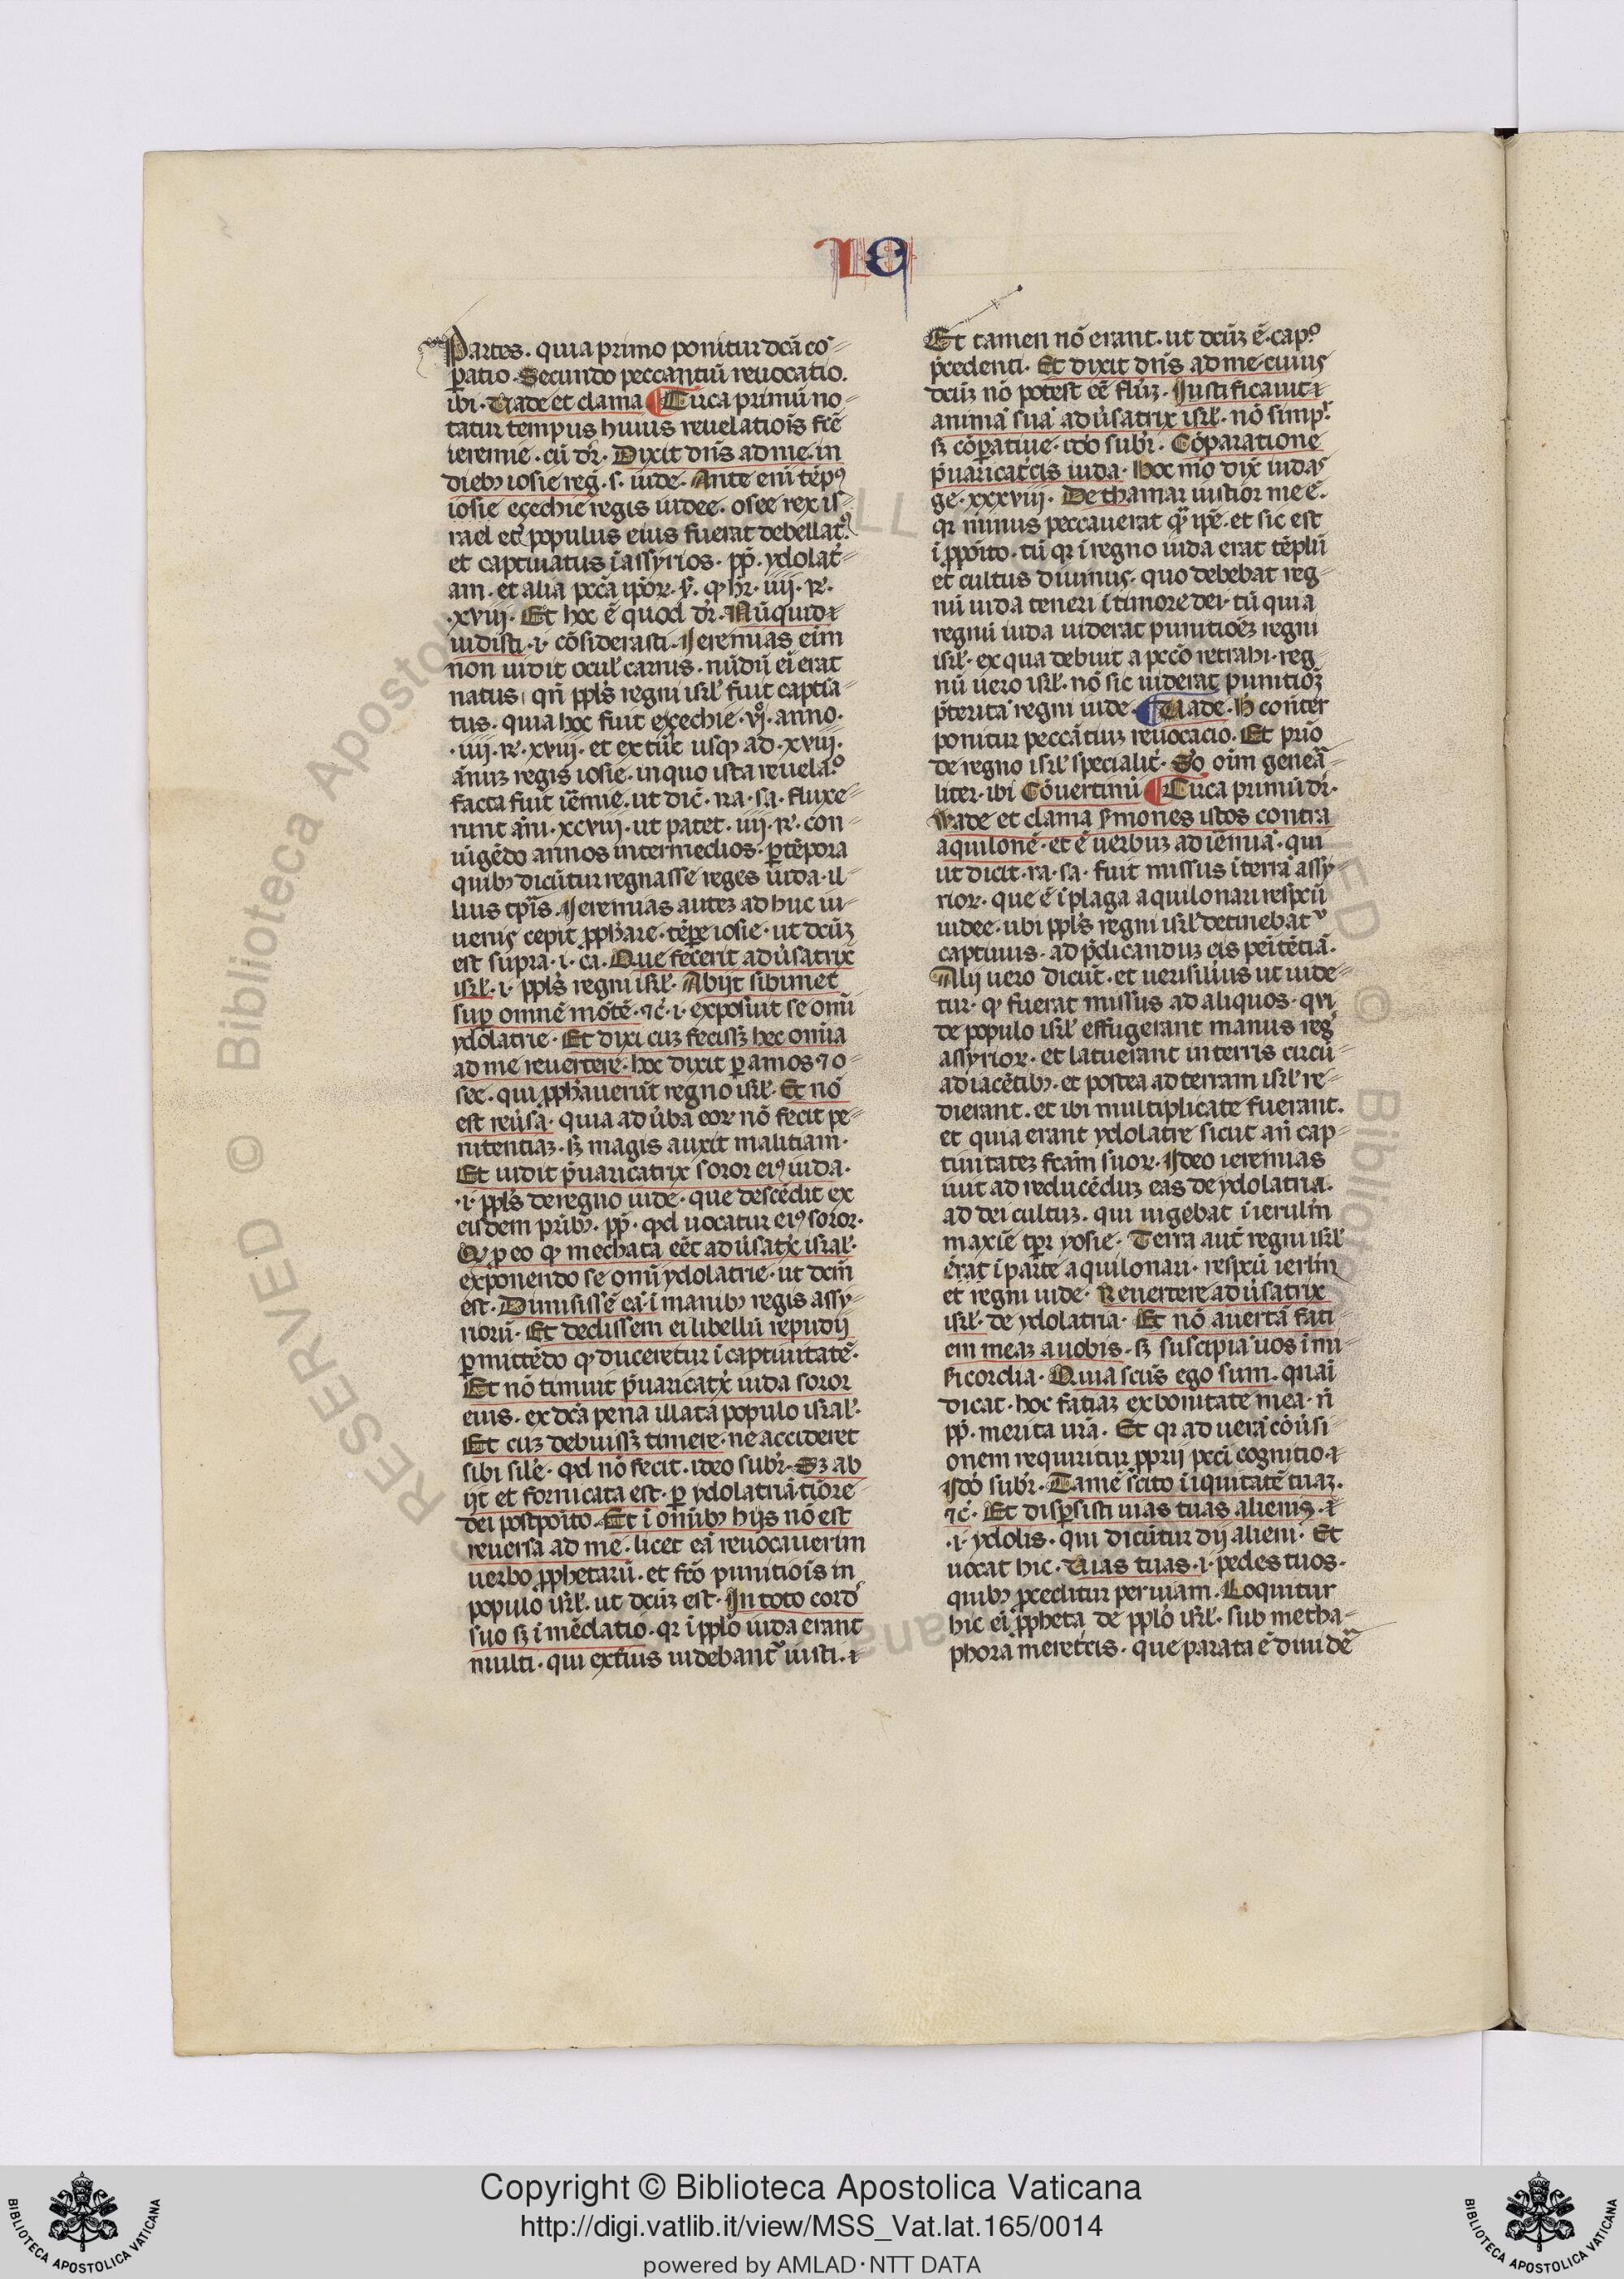 IE
Partes. quia primo ponitur dcā cō
ꝑatio. Secundo peccantiū reuocatio.
ibi. Uade et clama ¶ Circa primū no
tatur tempus huius reuelatiōis fcē
ieremie. cū dr̄. Dixit dn̄s ad me. in
dieb; iosie reḡ. s. iude. Ante eni tēpꝰ
iosie eçechie regis iudee. osee rex is
rael et populus eius fuerat debellatꝰ
et captiuatus ī assyrios. pp̄. ydolatⁱ
am. et alia pccā ipōꝝ. qꝫ hr̄. iiij. r̄.
xviij. Et hoc ē quod dr̄. Nūquid
uidisti. i. cōsiderasti. Ieremias eim
non uidit ocul̄ carnis. nūdū ei erat
natus. qn̄ ppl̄s regni isrl̄ fuit captiā
tus. quia hoc fuit eçechie. vj. anno.
iiij. r̄. xviij. et ex tūc usqꝫ ad. xviij.
ānuꝫ regis iosie. in quo ista reuela.º
facta fuit iēmie. ut dic̄. ra. sa. fluxe
runt āni. xcviij. ut patet. iiij. r̄. con
iūgēdo annos intermedios. ꝑ tēpora
quib; dicūtur regnasse reges iuda. il
lius tp̄is. Ieremias auteꝫ ad huc iu
uenis cepit ꝓph̄are. tēꝑe iosie. ut dcūꝫ
est supra. i. ca. Que fecerit aduˀsatrix
isrl̄. i. ppl̄s regni isrl̄. Abijt sibimet
suꝑ omnē mōtē. ⁊c̄. i. exposuit se omī
ydolatrie. Et dixi cuꝫ fecissꝫ hec omīa
ad me reuertere. hoc dixit ꝑ amos ⁊ o
see. qui ꝓph̄auerūt regno isrl̄. Et nō
est reuˀsa. quia ad uˀba eoꝝ nō fecit pe
nitentiaꝫ. sꝫ magis auxit malitiam.
Et uidit p̄uaricatrix soror eiꝰ iuda.
i. ppl̄s de regno iude. que descēdit ex
eisdem p̄rib;. pp̄. qd uocatur eiꝰ soror.
Qꝫ ꝑ eo qꝫ mechata eēt aduˀsatx̄ isral̄.
exponendo se omī ydolatrie. ut dcm̄
est. Dimisissē eā. i manib; regis assy
riorū. Et dedissem ei libellū repudij
ꝑmittēdo qꝫ duceretur ī captiuitatē.
Et nō timuit p̄uaricatx̄ iuda soror
eius. ex dcā pena illata populo isral̄.
Et cuꝫ debuissꝫ timere. ne accideret
sibi sil̄e. qd nō fecit. ideo subr̄. Sꝫ ab
ijt et fornicata est. ꝑ ydolatriā. tiōre
dei postpoīto. Et ī omīb; hijs nō est
reuersa ad me. licet eā reuocauerim
uerbo ꝓphetarū. et fcō punitiōis in
populo isrl̄. ut dcūꝫ est. In toto cordˀ
suo sꝫ ī mēdatio. qꝛ ī pplō iuda erant
multi. qui exteˀius uidebantˀ iusti.
Et tamen nō erant. ut dcūꝫ ē. cap.º
p̄cedenti. Et dixit dn̄s ad me. cuius
dcūꝫ nō potest eē fl̄uꝫ. Iustificauit
animā suā aduˀsatrix isrl̄. nō simpˀ.
sꝫ cōꝑatiue. ido subr̄. Cōparatione
p̄uaricatˀcis iuda. Hoc mō dix̄ iudas
ge. xxxviij. De thamar iustior me ē.
qꝛ minus peccauerat qȝ ip̄e. et sic est
ī ꝓpōito. tū qꝛ ī regno iuda erat tēplū
et cultus diuinus. quo debebat reg
nū iuda teneri ī timore dei. tū quia
regnū iuda uiderat punitiōeꝫ regni
isrl̄. ex qua debuit a pccō retrahi. reg
nū uero isrl̄. nō sic uiderat punitiōꝫ
p̄teritā regni iude. ¶ Uade. H̄ conˀter
ponitur peccātiuꝫ reuocacio. Et prīo
de regno isrl̄ specialitˀ. Sō oīm genēa
liter. ibi Cōuertimī ¶ Circa primū dr̄.
Uade et clama sˀmones istos contra
aquilonē. et ē uerbuꝫ ad iēmiā. qui
ut dicit. ra. sa. fuit missus ī terrā assy
rioꝝ. que ē ī plaga aquilonari respcū
iudee. ubi ppl̄s regni isrl̄ detinebatˀ
captiuus. ad p̄dicanduꝫ eis peītētiā.
Alij uero dicūt. et uerisilius ut uide
tur. qꝫ fuerat missus ad aliquos. qui
de populo isrl̄ effugerant manus regˀ
assyrioꝝ. et latuerant in terris circū
adiacētib;. et postea ad terram isrl̄ re
dierant. et ibi multiplicate fuerant.
et quia erant ydolatre sicut an̄ cap
tiuitateꝫ fram̄ suoꝝ. Ideo ieremias
iuit ad reducēduꝫ eas de ydolatria.
ad dei cultuꝫ. qui uigebat ī ierulm̄
maxīe tp̄r yosie. Terra autˀ regni isrl̄
erat ī parte aquilonari. respcū ierlm̄
et regni iude. Reuertere aduˀsatrix
isrl̄. de ydolatria. Et nō auertā faci
em meaꝫ a uobis. sꝫ suscipiā uos ī mi
sˀicordia. Quia scūs ego sum. quasi
dicat. hoc faciaꝫ ex bonitate mea. n̄
pp̄. merita urā. Et qꝛ ad uerā cōuˀsi
onem requiritur ꝓprij pcci cognitio.
Ido subr̄. Tamē scito īiquitatē tuaꝫ.
⁊c̄. Et disꝑsisti uias tuas alienis.
i. ydolis. qui dicūtur dij alieni. Et
uocat hic. Uias tuas. i. pedes tuos.
quib; ꝓceditur per uiam. Loquitur
hic ei ꝓpheta de pplō isrl̄. sub metha
phorā meretˀcis. que parata ē diuidē